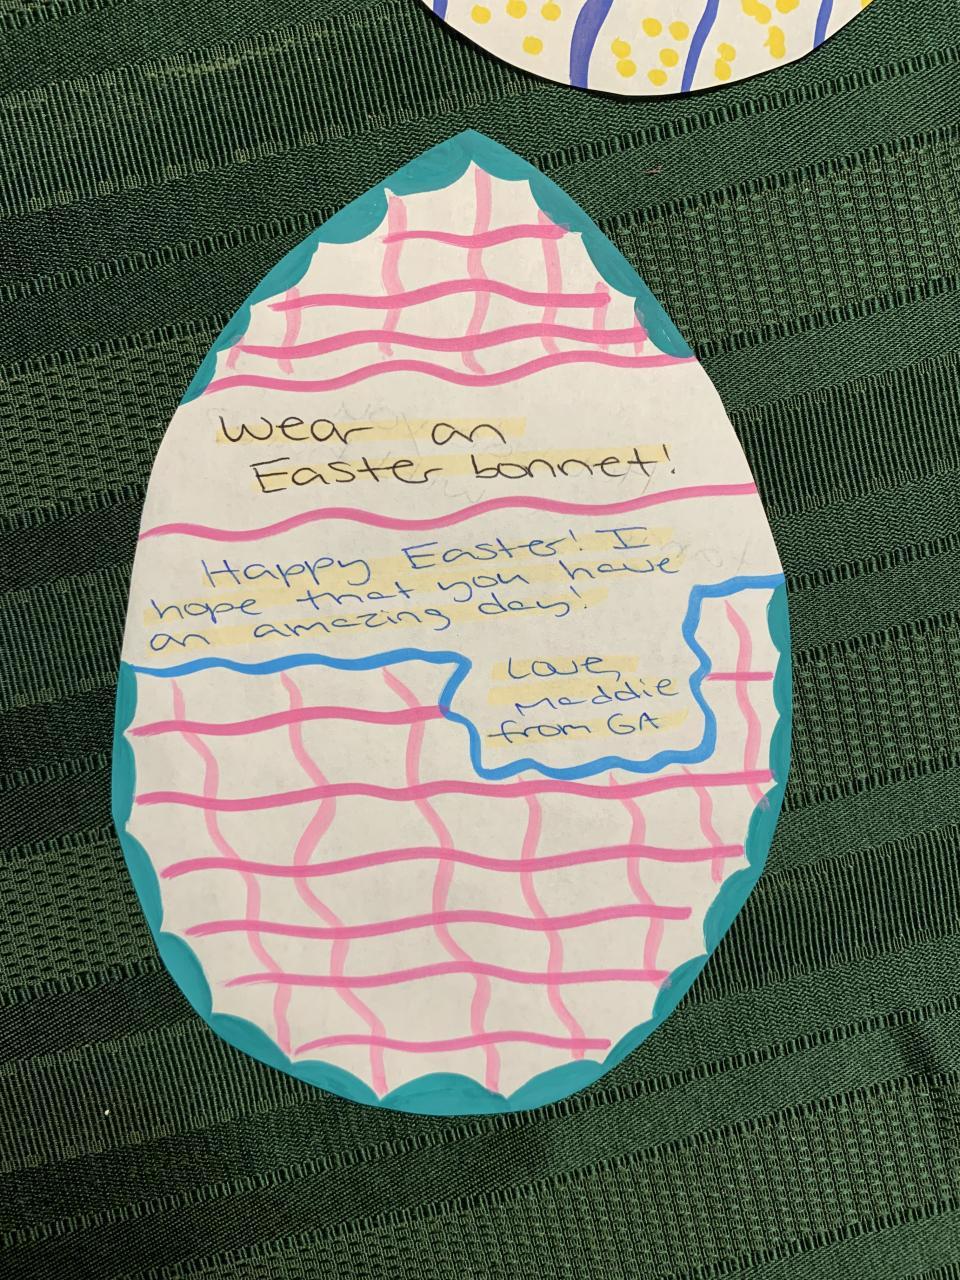 Wear an
Easter bonnet!
Happy Easter! I
hope that you have
an amazing day!
Love,
Maddie
from GA